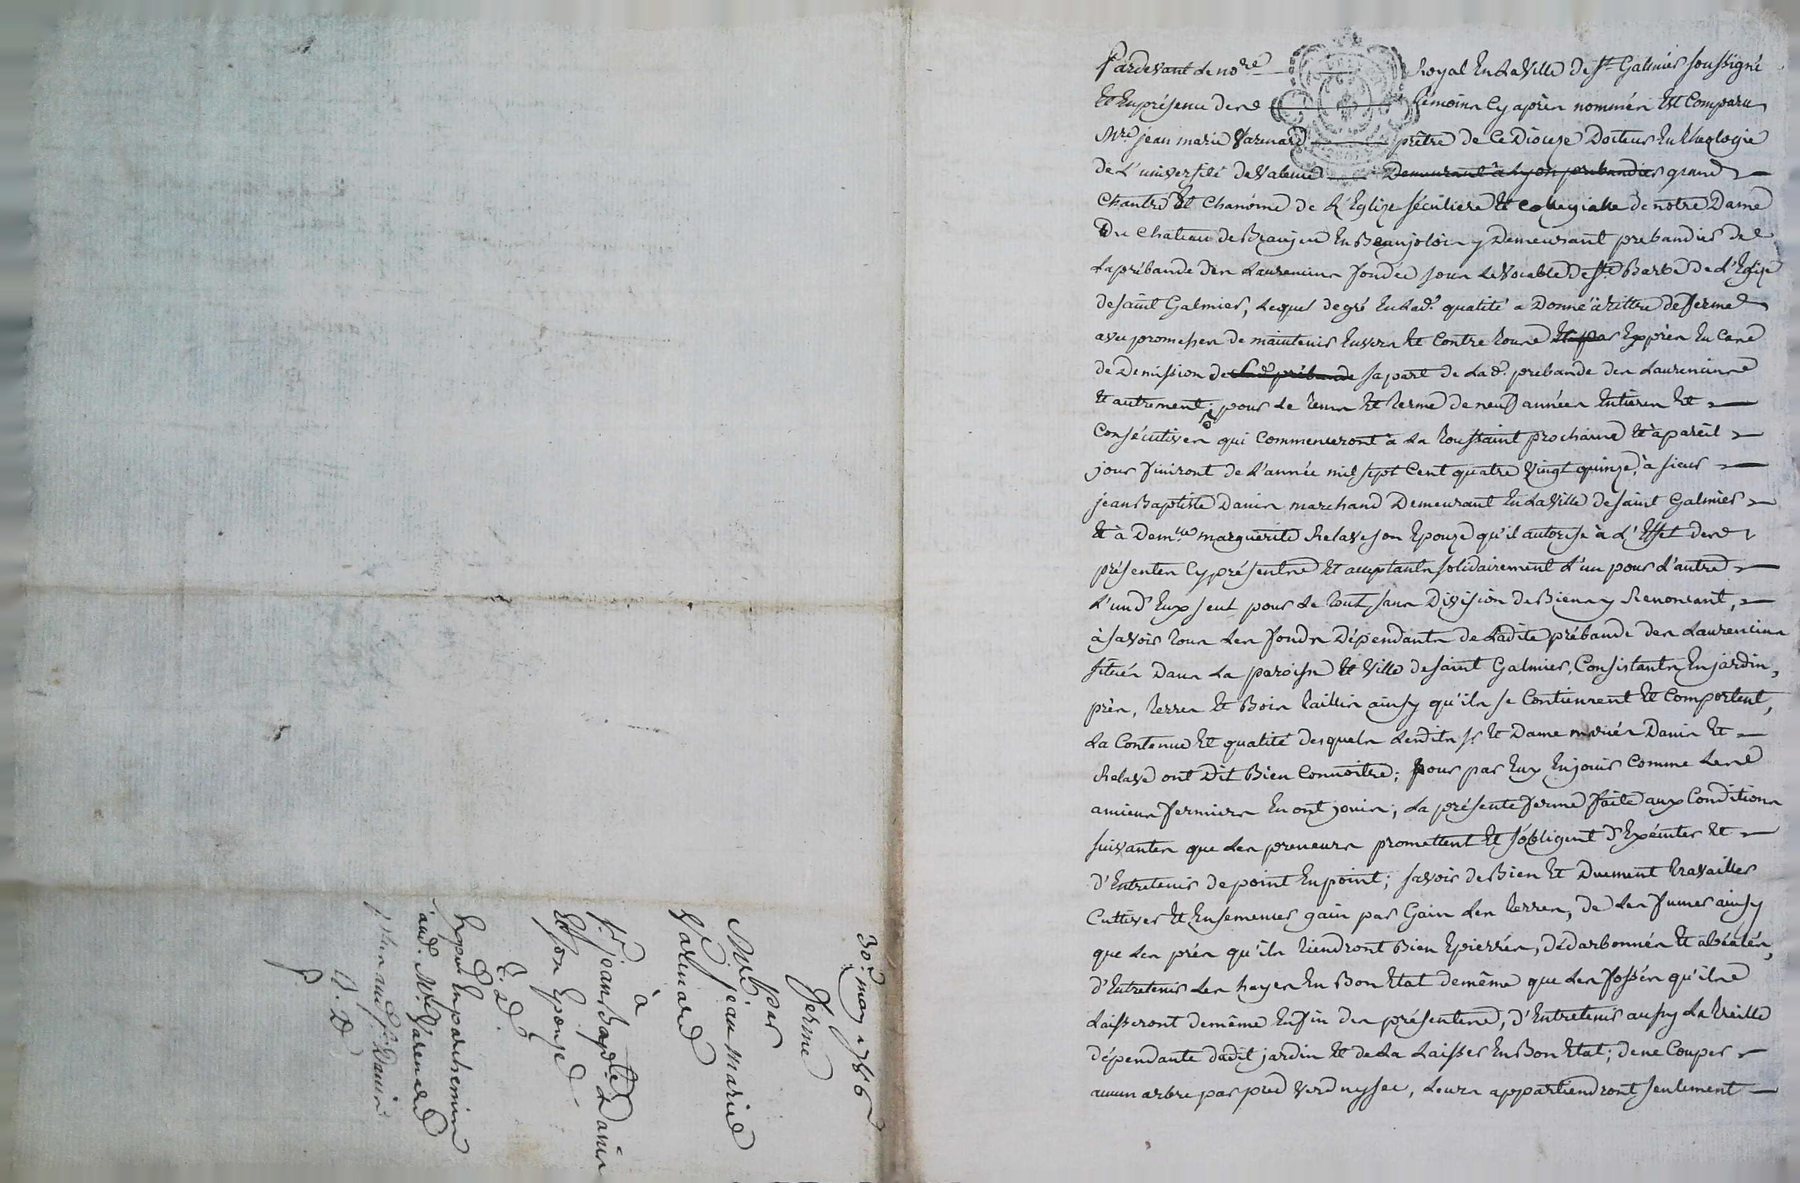 30e. may 1786
Ferme
par
Mre jean marie
Varenard
à
sr. jean Bapte. Danis
Et son Epouse
E. d.
Expéd. En parchemin
aud. Mre Varenard
plus aud. sr. Danis
Pardevant le nore Royal En la Ville de st. Galmier soussigné
Et En présence des témoins Cy après nommés Est Comparu
Mre. jean marie Varenard prêtre de Ce Diocèze Docteur En théologie
de L'université de Valence Demeurant à Lyon prebandier grand
Chantre Et Chanoine de L'Eglize séculiere Et Collegialle de notre Dame
Du Chateau de Beaujeu En Beaujolois y Demeurant prebandier de
La prébande des Laurencins fondée sous Le Vocable de ste Barbe de L'Eglize
de saint Galmier, Lequel de gré En Lad. qualité a Donné à tittre de ferme
avec promesses de maintenir Envers Et Contre tous Et par Exprès En Cas
de Demission de lad. prébande sa part de La d. prebande des Laurencins
Et autrement; pour Le tems Et terme de neuf années Entieres Et
Consécutives qui Commenceront à La toussaint prochaine Et à pareil
jour finiront de L'année mil sept Cent quatre Vingt quinze, à sieur
jean Baptiste Danis marchand Demeurant En La Ville de saint Galmier
Et à Demlle marguerite Relave son Epouze qu'il autorise à L'Effet des
présentes Cy présents Et acceptants solidairement L'un pour L'autre
L'un d'Eux seul pour Le tout sans Division de Biens y Renoncant,
à savoir tous Les fonds Dépendants de Ladite prébande des Laurencins
situés Dans La paroisse Et Ville de saint Galmier, Consistants En jardin,
près, terres Et Bois taillis ainsy qu'ils se Contiennent Et Comportent,
La Contenue Et qualité desquels Lesdits sr Et Dame mariés Danis Et
Relave ont Dit Bien Connoitre; pour par Eux En jouir Comme Les
anciens fermiers En ont jouis; La présente ferme faite aux Conditions
suivantes que Les preneurs promettent Et s'obligent d'Exécuter Et
d'Entretenir de point En point; savoir de Bien Et Duement travailler
Cultiver Et Ensemencer gain par Gain Les terres, de Les fumer ainsy
que Les près qu'ils tiendront Bien Epierrés, Dédarbonnés Et abéalés,
d'Entretenir Les hayes En Bon Etat de même que Les fossés qu'ils
Laisseront de même En fin des présentes, d'Entretenir aussy La treille
dépendante dudit jardin Et de La Laisser En Bon Etat; de ne Couper
aucun arbre par pied Verd ny sec, Leurs appartiendront seulement